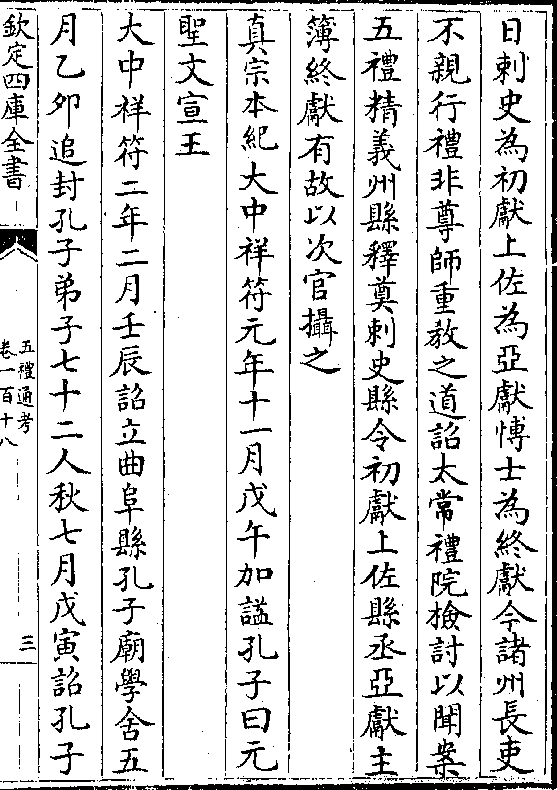 日刺史為初獻上佐為亞獻博士為終獻今諸州長吏
不親行禮非尊師重教之道詔太常禮院檢討以聞案
五禮精義州縣釋奠刺史縣令初獻上佐縣丞亞獻主
簿終獻有故以次官攝之
真宗本紀大中祥符元年十一月戊午加謚孔子曰元
聖文宣王
大中祥符二年二月壬辰詔立曲阜縣孔子廟學舍五
月乙卯追封孔子弟子七十二人秋七月戊寅詔孔子
欽定四庫全書
五禮通考
卷一百十八
三